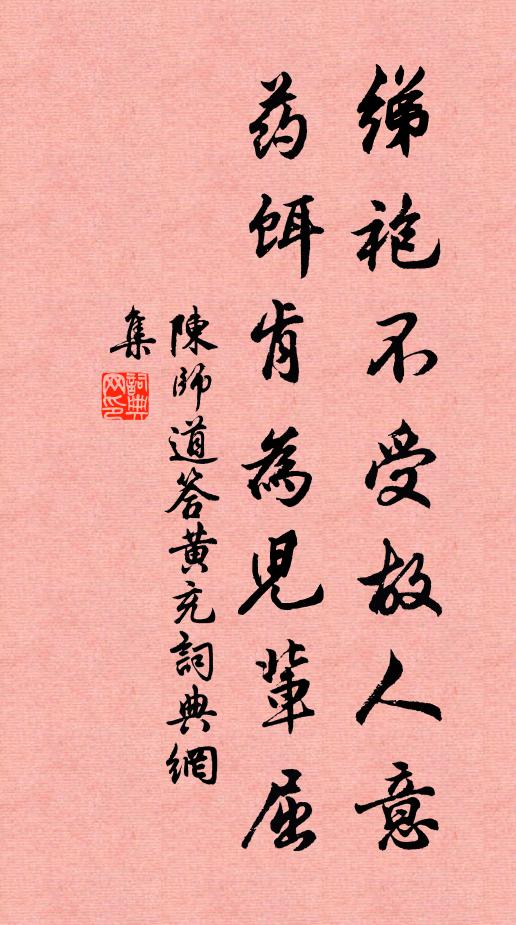 绨袍不受故人意
药饵肯為兒輩屈
陳師道答黄充詞典網
集
詞典网印